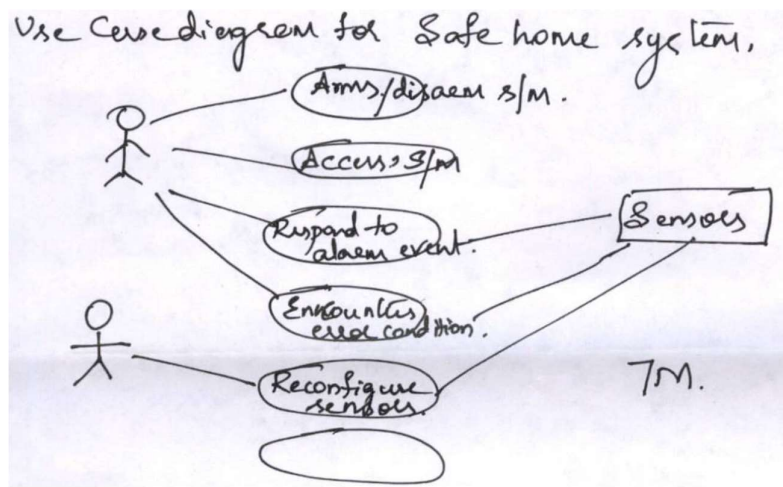 Use Case diagram for Safe home system.
Arms/disarm s/m.
Access s/m
Respond to
alarm event.
Sensors
Encounters
error condition.
Reconfigure
sensors.
7M.